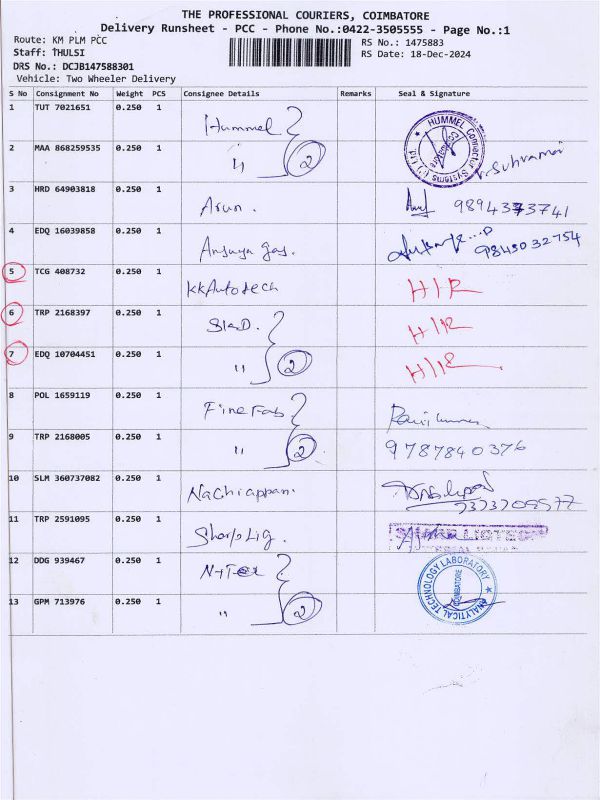 THE PROFESSIONAL COURIERS, COIMBATORE
Delivery Runsheet - PCC - Phone No.:0422-3505555 - Page No.:1
Route: KM PLM PCC
RS No.: 1475883
Staff: THULSI
RS Date: 18-Dec-2024
DRS No.: DCJB147588301
Vehicle: Two Wheeler Delivery
S No Consignment No Weight PCS Consignee Details Remarks Seal & Signature
1 TUT 7021651 0.250 1 Hummel HUMMEL Connector Systems (P) Ltd
2 MAA 868259535 0.250 1 " 2
3 HRD 64903818 0.250 1 Arun. 9894373741
4 EDQ 16039858 0.250 1 gas. 9843032754
5 TCG 408732 0.250 1 KKAutotech H/R
6 TRP 2168397 0.250 1 H/R
7 EDQ 10704451 0.250 1 " 2 H/R
8 POL 1659119 0.250 1 Fine Fab
9 TRP 2168005 0.250 1 " 2 9787840376
10 SLM 360737082 0.250 1 Nachiappan. 7373709577
11 TRP 2591095 0.250 1
12 DDG 939467 0.250 1 ANALYTICAL TECHNOLOGY LABORATORY COIMBATORE
13 GPM 713976 0.250 1 " 2